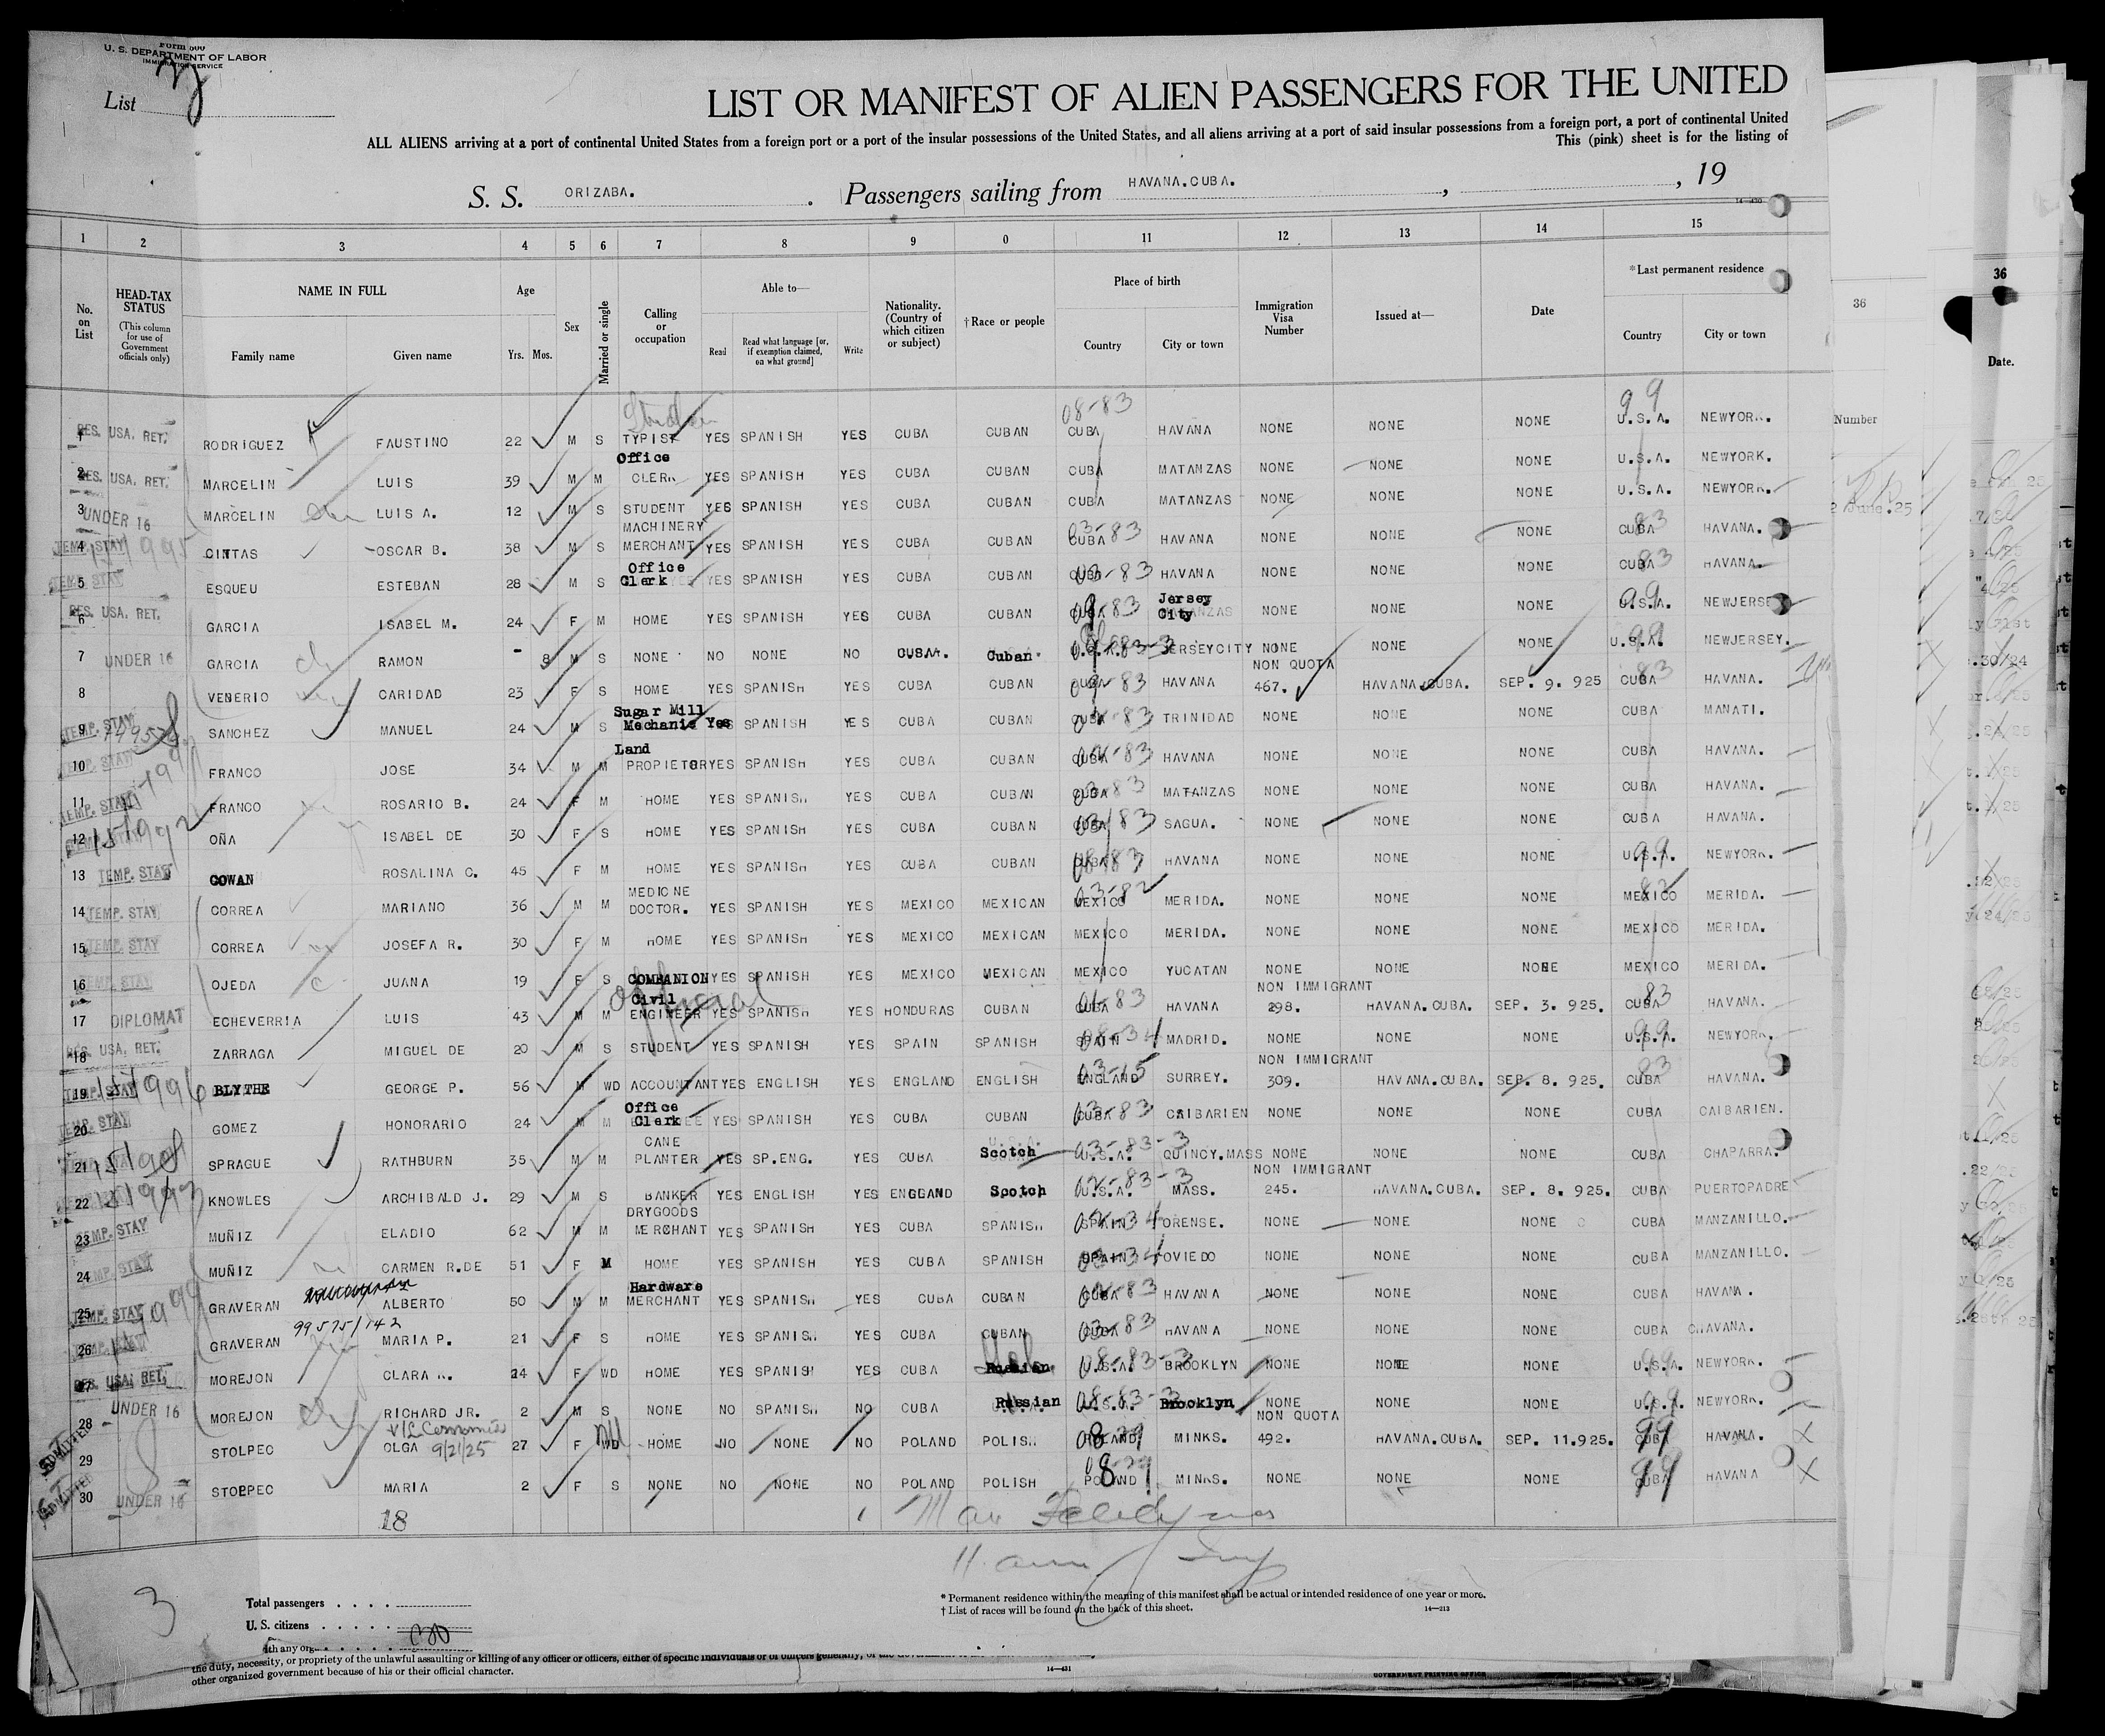 Form 500
U. S. DEPARTMENT OF LABOR
IMMIGRATION SERVICE
List
LIST OR MANIFEST OF ALIEN PASSENGERS FOR THE UNITED
ALL ALIENS arriving at a port of continental United States from a foreign port or a port of the insular possessions of the United States, and all aliens arriving at a port of said insular possessions from a foreign port, a port of continental United
This (pink) sheet is for the listing of
S. S. ORIZABA. Passengers sailing from HAVANA.CUBA. , , 19
1 2 3 4 5 6 7 8 9 0 11 12 13 14 15
No. on List
HEAD-TAX STATUS (This column for use of Government officials only)
NAME IN FULL
Family name Given name
Age
Yrs. Mos.
Sex
Married or single
Calling or occupation
Able to—
Read Read what language [or, if exemption claimed, on what ground] Write
Nationality. (Country of which citizen or subject)
†Race or people
Place of birth
Country City or town
Immigration Visa Number
Issued at—
Date
*Last permanent residence
Country City or town
36
36
Date.
Number
2 June.25
1 RES. USA. RET. RODRIGUEZ FAUSTINO 22 M S TYPIST YES SPANISH YES CUBA CUBAN CUBA 08-83 HAVANA NONE NONE NONE U.S.A. 99 NEWYORK.
2 RES. USA. RET. MARCELIN LUIS 39 M M Office CLERK YES SPANISH YES CUBA CUBAN CUBA MATANZAS NONE NONE NONE U.S.A. NEWYORK.
3 UNDER 16 MARCELIN LUIS A. 12 M S STUDENT YES SPANISH YES CUBA CUBAN CUBA MATANZAS NONE NONE NONE U.S.A. NEWYORK.
4 TEMP. STAY CINTAS OSCAR B. 38 M S MACHINERY MERCHANT YES SPANISH YES CUBA CUBAN CUBA 03-83 HAVANA NONE NONE NONE CUBA 83 HAVANA.
5 TEMP. STAY ESQUEU ESTEBAN 28 M S Office Clerk YES SPANISH YES CUBA CUBAN CUBA 03-83 HAVANA NONE NONE NONE CUBA 83 HAVANA.
6 RES. USA. RET. GARCIA ISABEL M. 24 F M HOME YES SPANISH YES CUBA CUBAN 83 Jersey City NONE NONE NONE U.S.A. 99 NEWJERSEY
7 UNDER 16 GARCIA RAMON - 8 M S NONE NO NONE NO CUBA. Cuban. 83-3 JERSEYCITY NONE NONE NONE U.S.A. 99 NEWJERSEY.
8 VENERIO CARIDAD 23 F S HOME YES SPANISH YES CUBA CUBAN CUBA 83 HAVANA NON QUOTA 467. HAVANA.CUBA. SEP. 9. 925 CUBA 83 HAVANA.
9 TEMP. STAY SANCHEZ MANUEL 24 M S Sugar Mill Mechanic Yes SPANISH YES CUBA CUBAN CUBA 83 TRINIDAD NONE NONE NONE CUBA MANATI.
10 TEMP. STAY FRANCO JOSE 34 M M Land PROPIETOR YES SPANISH YES CUBA CUBAN CUBA 83 HAVANA NONE NONE NONE CUBA HAVANA.
11 TEMP. STAY FRANCO ROSARIO B. 24 F M HOME YES SPANISH YES CUBA CUBAN CUBA 83 MATANZAS NONE NONE NONE CUBA HAVANA.
12 TEMP. STAY OÑA ISABEL DE 30 F S HOME YES SPANISH YES CUBA CUBAN CUBA 83 SAGUA. NONE NONE NONE CUBA HAVANA.
13 TEMP. STAY COWAN ROSALINA C. 45 F M HOME YES SPANISH YES CUBA CUBAN CUBA 83 HAVANA NONE NONE NONE U.S.A. 99 NEWYORK.
14 TEMP. STAY CORREA MARIANO 36 M M MEDICINE DOCTOR. YES SPANISH YES MEXICO MEXICAN MEXICO 03-82 MERIDA. NONE NONE NONE MEXICO 82 MERIDA.
15 TEMP. STAY CORREA JOSEFA R. 30 F M HOME YES SPANISH YES MEXICO MEXICAN MEXICO MERIDA. NONE NONE NONE MEXICO MERIDA.
16 TEMP. STAY OJEDA JUANA 19 F S COMPANION YES SPANISH YES MEXICO MEXICAN MEXICO YUCATAN NONE NONE NONE MEXICO MERIDA.
17 DIPLOMAT ECHEVERRIA LUIS 43 M M Civil ENGINEER official YES SPANISH YES HONDURAS CUBAN CUBA 01-83 HAVANA NON IMMIGRANT 298. HAVANA.CUBA. SEP. 3. 925. CUBA 83 HAVANA.
18 RES. USA. RET. ZARRAGA MIGUEL DE 20 M S STUDENT YES SPANISH YES SPAIN SPANISH SPAIN 08-34 MADRID. NONE NONE NONE U.S.A. 99 NEWYORK.
19 TEMP. STAY BLYTHE GEORGE P. 56 M WD ACCOUNTANT YES ENGLISH YES ENGLAND ENGLISH ENGLAND 03-15 SURREY. NON IMMIGRANT 309. HAVANA.CUBA. SEP. 8. 925. CUBA 83 HAVANA.
20 TEMP. STAY GOMEZ HONORARIO 24 M M Office Clerk YES SPANISH YES CUBA CUBAN CUBA 03-83 CAIBARIEN NONE NONE NONE CUBA CAIBARIEN.
21 TEMP. STAY SPRAGUE RATHBURN 35 M M CANE PLANTER YES SP.ENG. YES CUBA Scotch U.S.A. 03-83-3 QUINCY.MASS NONE NONE NONE CUBA CHAPARRA.
22 KNOWLES ARCHIBALD J. 29 M S BANKER YES ENGLISH YES ENGLAND Scotch U.S.A. 83-3 MASS. NON IMMIGRANT 245. HAVANA.CUBA. SEP. 8. 925. CUBA PUERTOPADRE
23 TEMP. STAY MUÑIZ ELADIO 62 M M DRYGOODS MERCHANT YES SPANISH YES CUBA SPANISH SPAIN 34 ORENSE. NONE NONE NONE CUBA MANZANILLO.
24 TEMP. STAY MUÑIZ CARMEN R.DE 51 F M HOME YES SPANISH YES CUBA SPANISH SPAIN 34 OVIEDO NONE NONE NONE CUBA MANZANILLO.
25 TEMP. STAY GRAVERAN ALBERTO 50 M M Hardware MERCHANT YES SPANISH YES CUBA CUBAN CUBA 83 HAVANA NONE NONE NONE CUBA HAVANA.
99575/142
26 TEMP. STAY GRAVERAN MARIA P. 21 F S HOME YES SPANISH YES CUBA CUBAN CUBA 03-83 HAVANA NONE NONE NONE CUBA HAVANA.
27 RES. USA. RET. MOREJON CLARA 24 F WD HOME YES SPANISH YES CUBA Russian U.S.A. 08-83-3 BROOKLYN NONE NONE NONE U.S.A. 99 NEWYORK.
28 UNDER 16 MOREJON RICHARD JR. 2 M S NONE NO SPANISH NO CUBA Russian U.S.A. 08-83-3 Brooklyn NONE NONE NONE U.S.A. NEWYORK.
29 ADMITTED STOLPEC OLGA 9/21/25 27 F WD HOME NO NONE NO POLAND POLISH POLAND MINKS. NON QUOTA 492. HAVANA.CUBA. SEP. 11.925. CUBA 99 HAVANA.
30 ADMITTED UNDER 16 STOLPEC MARIA 2 F S NONE NO NONE NO POLAND POLISH POLAND MINKS. NONE NONE NONE CUBA 99 HAVANA
18
3
Total passengers
U. S. citizens
30
* Permanent residence within the meaning of this manifest shall be actual or intended residence of one year or more.
† List of races will be found on the back of this sheet.
14—213
the duty, necessity, or propriety of the unlawful assaulting or killing of any officer or officers, either of specific individuals or of officers generally, of the
other organized government because of his or their official character.
14—431
GOVERNMENT PRINTING OFFICE